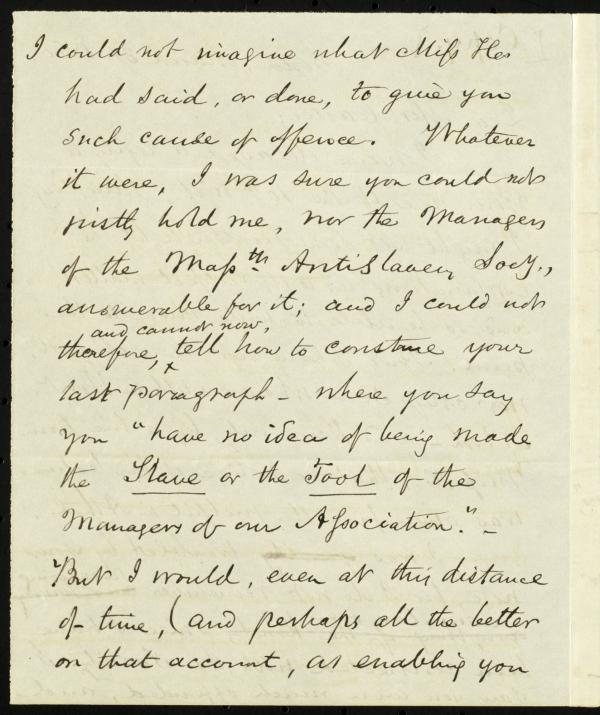 I could not imagine what Miss Hes
had said, or done, to give you
such cause of offence. Whatever
it were, I was sure you could not
justly hold me, nor the Managers
of the Mass.th AntiSlavery Socy.,
answerable for it; and I could not
and cannot now,
therefore, tell how to construe your
last paragraph - where you say
you "have no idea of being made
the Slave or the Tool of the
Managers of our Association." -
But I would, even at this distance
of time, (and perhaps all the better
on that account, as enabling you